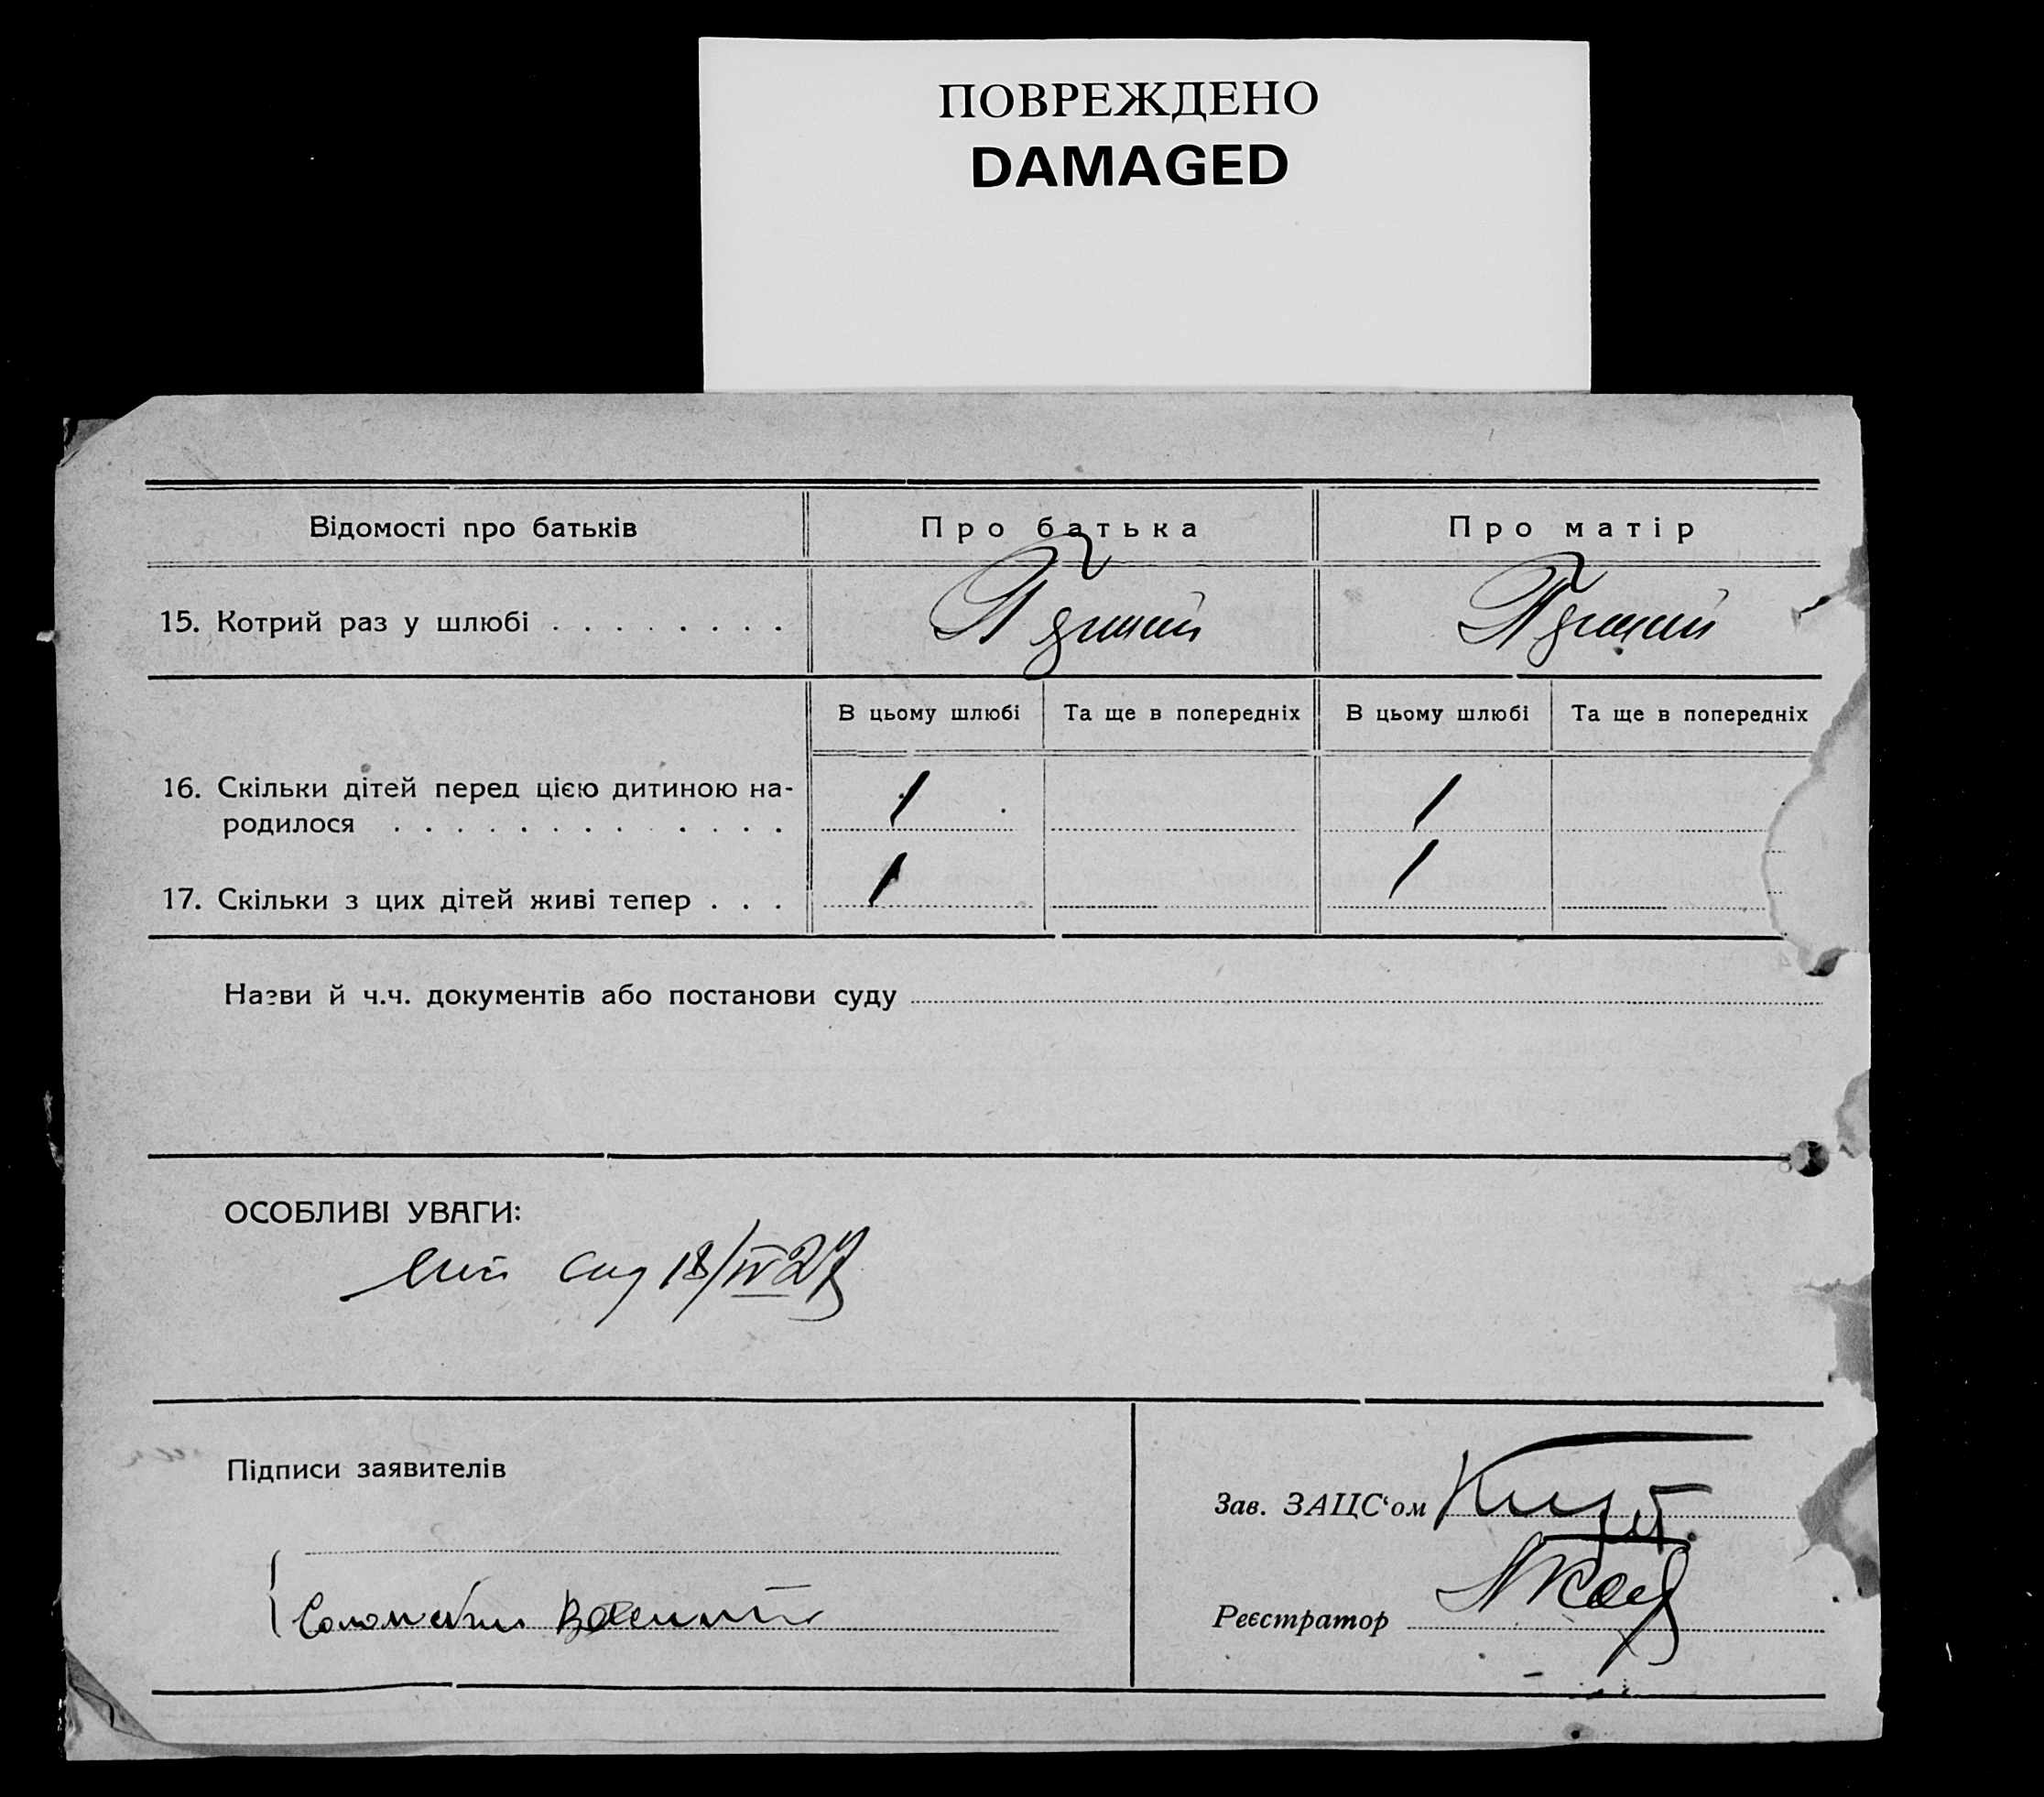 ПОВРЕЖДЕНО
DAMAGED
Відомості про батьків
Про батька
Про матір
15. Котрий раз у шлюбі . . . . . . . .
В цьому шлюбі
Та ще в попередніх
В цьому шлюбі
Та ще в попередніх
16. Скільки дітей перед цією дитиною на-
родилося . . . . . . . . . . . . .
1
1
17. Скільки з цих дітей живі тепер . . .
1
1
Назви й ч.ч. документів або постанови суду
ОСОБЛИВІ УВАГИ:
18/IV 27
Підписи заявителів
Зав. ЗАЦС‘ом
Реєстратор